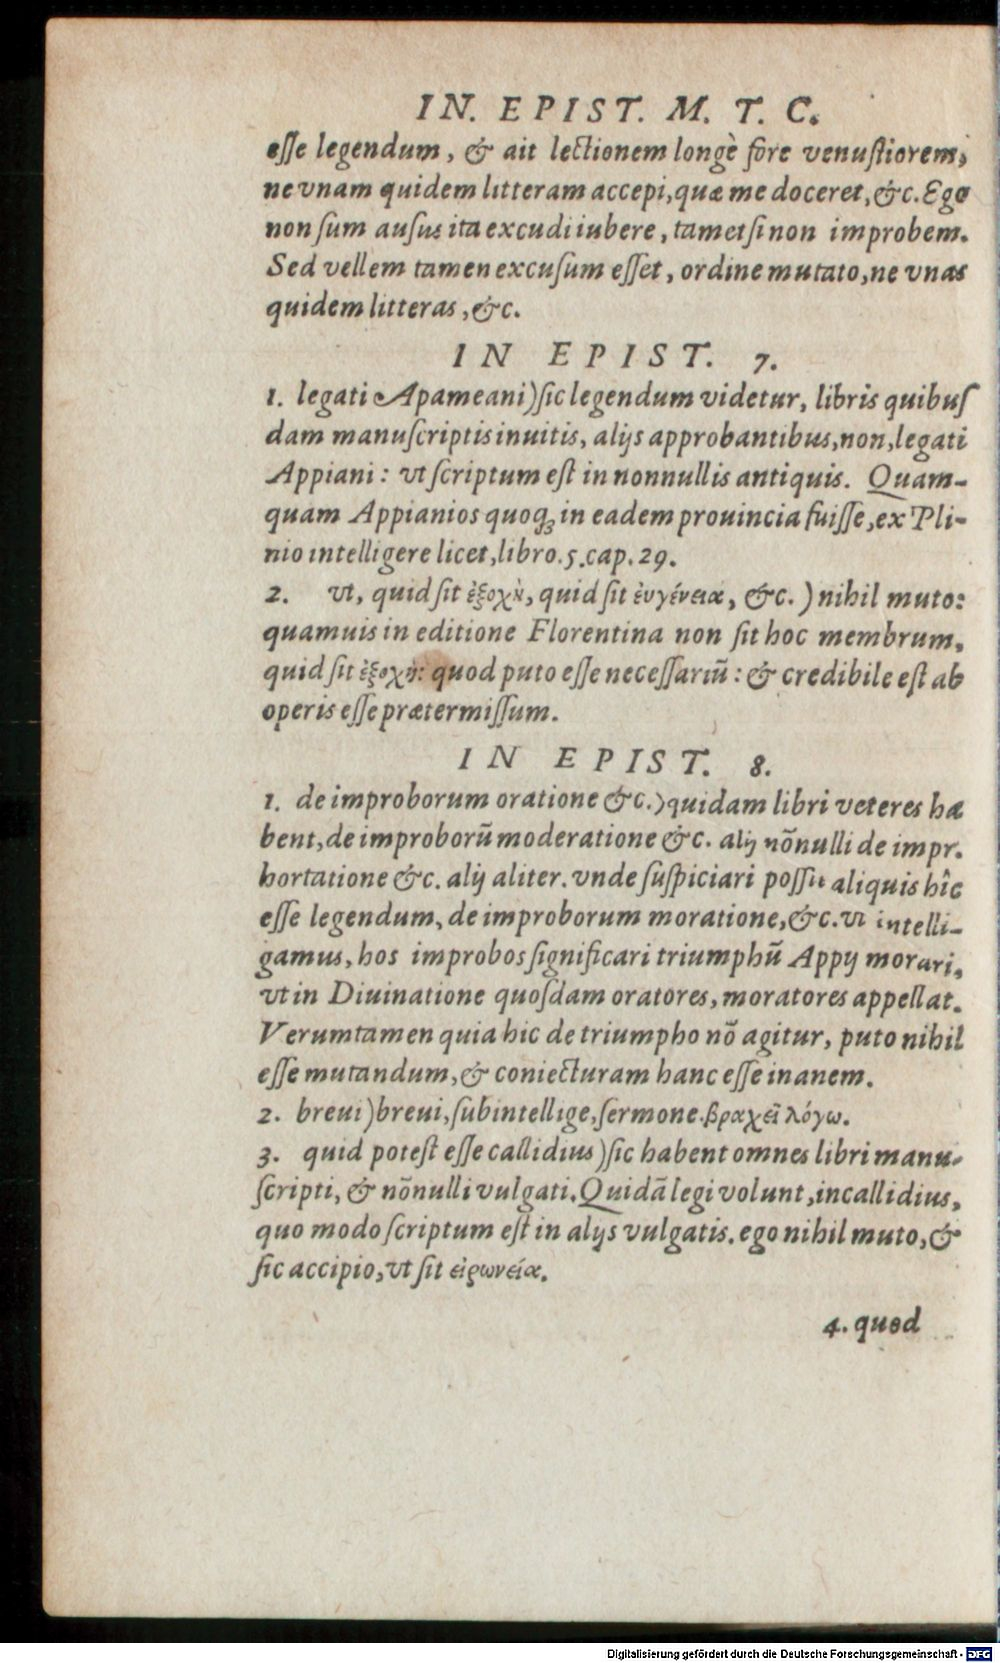 IN. EPIST. M. T. C.
esse legendum, & ait lectionem longè fore venustiorem,
ne vnam quidem litteram accepi, quæ me doceret, &c. Ego
non sum ausus ita excudi iubere, tametsi non improbem.
Sed vellem tamen excusum esset, ordine mutato, ne vnas
quidem litteras, &c.
IN EPIST. 7.
1. legati Apameani) sic legendum videtur, libris quibus
dam manuscriptis inuitis, alijs approbantibus, non, legati
Appiani: vt scriptum est in nonnullis antiquis. Quam-
quam Appianios quoq; in eadem prouincia fuisse, ex Pli-
nio intelligere licet, libro. 5. cap. 29.
2. vt, quid sit ἐξοχὴ, quid sit ἐυγένεια, &c.) nihil muto:
quamuis in editione Florentina non sit hoc membrum,
quid sit ἐξοχή: quod puto esse necessariũ: & credibile est ab
operis esse prætermissum.
IN EPIST. 8.
1. de improborum oratione &c.) quidam libri veteres ha
bent, de improborũ moderatione &c. alij nõnulli de impr.
hortatione &c. alij aliter. vnde suspiciari possit aliquis hîc
esse legendum, de improborum moratione, &c. vt intelli-
gamus, hos improbos significari triumphũ Appij morari,
vt in Diuinatione quosdam oratores, moratores appellat.
Verumtamen quia hic de triumpho nõ agitur, puto nihil
esse mutandum, & coniecturam hanc esse inanem.
2. breui) breui, subintellige, sermone. βραχεῖ λόγω.
3. quid potest esse callidius) sic habent omnes libri manu-
scripti, & nõnulli vulgati. Quidã legi volunt, incallidius,
quo modo scriptum est in alijs vulgatis. ego nihil muto, &
sic accipio, vt sit εἰρωνεία.
4. quod
Digitalisierung gefördert durch die Deutsche Forschungsgemeinschaft - DFG